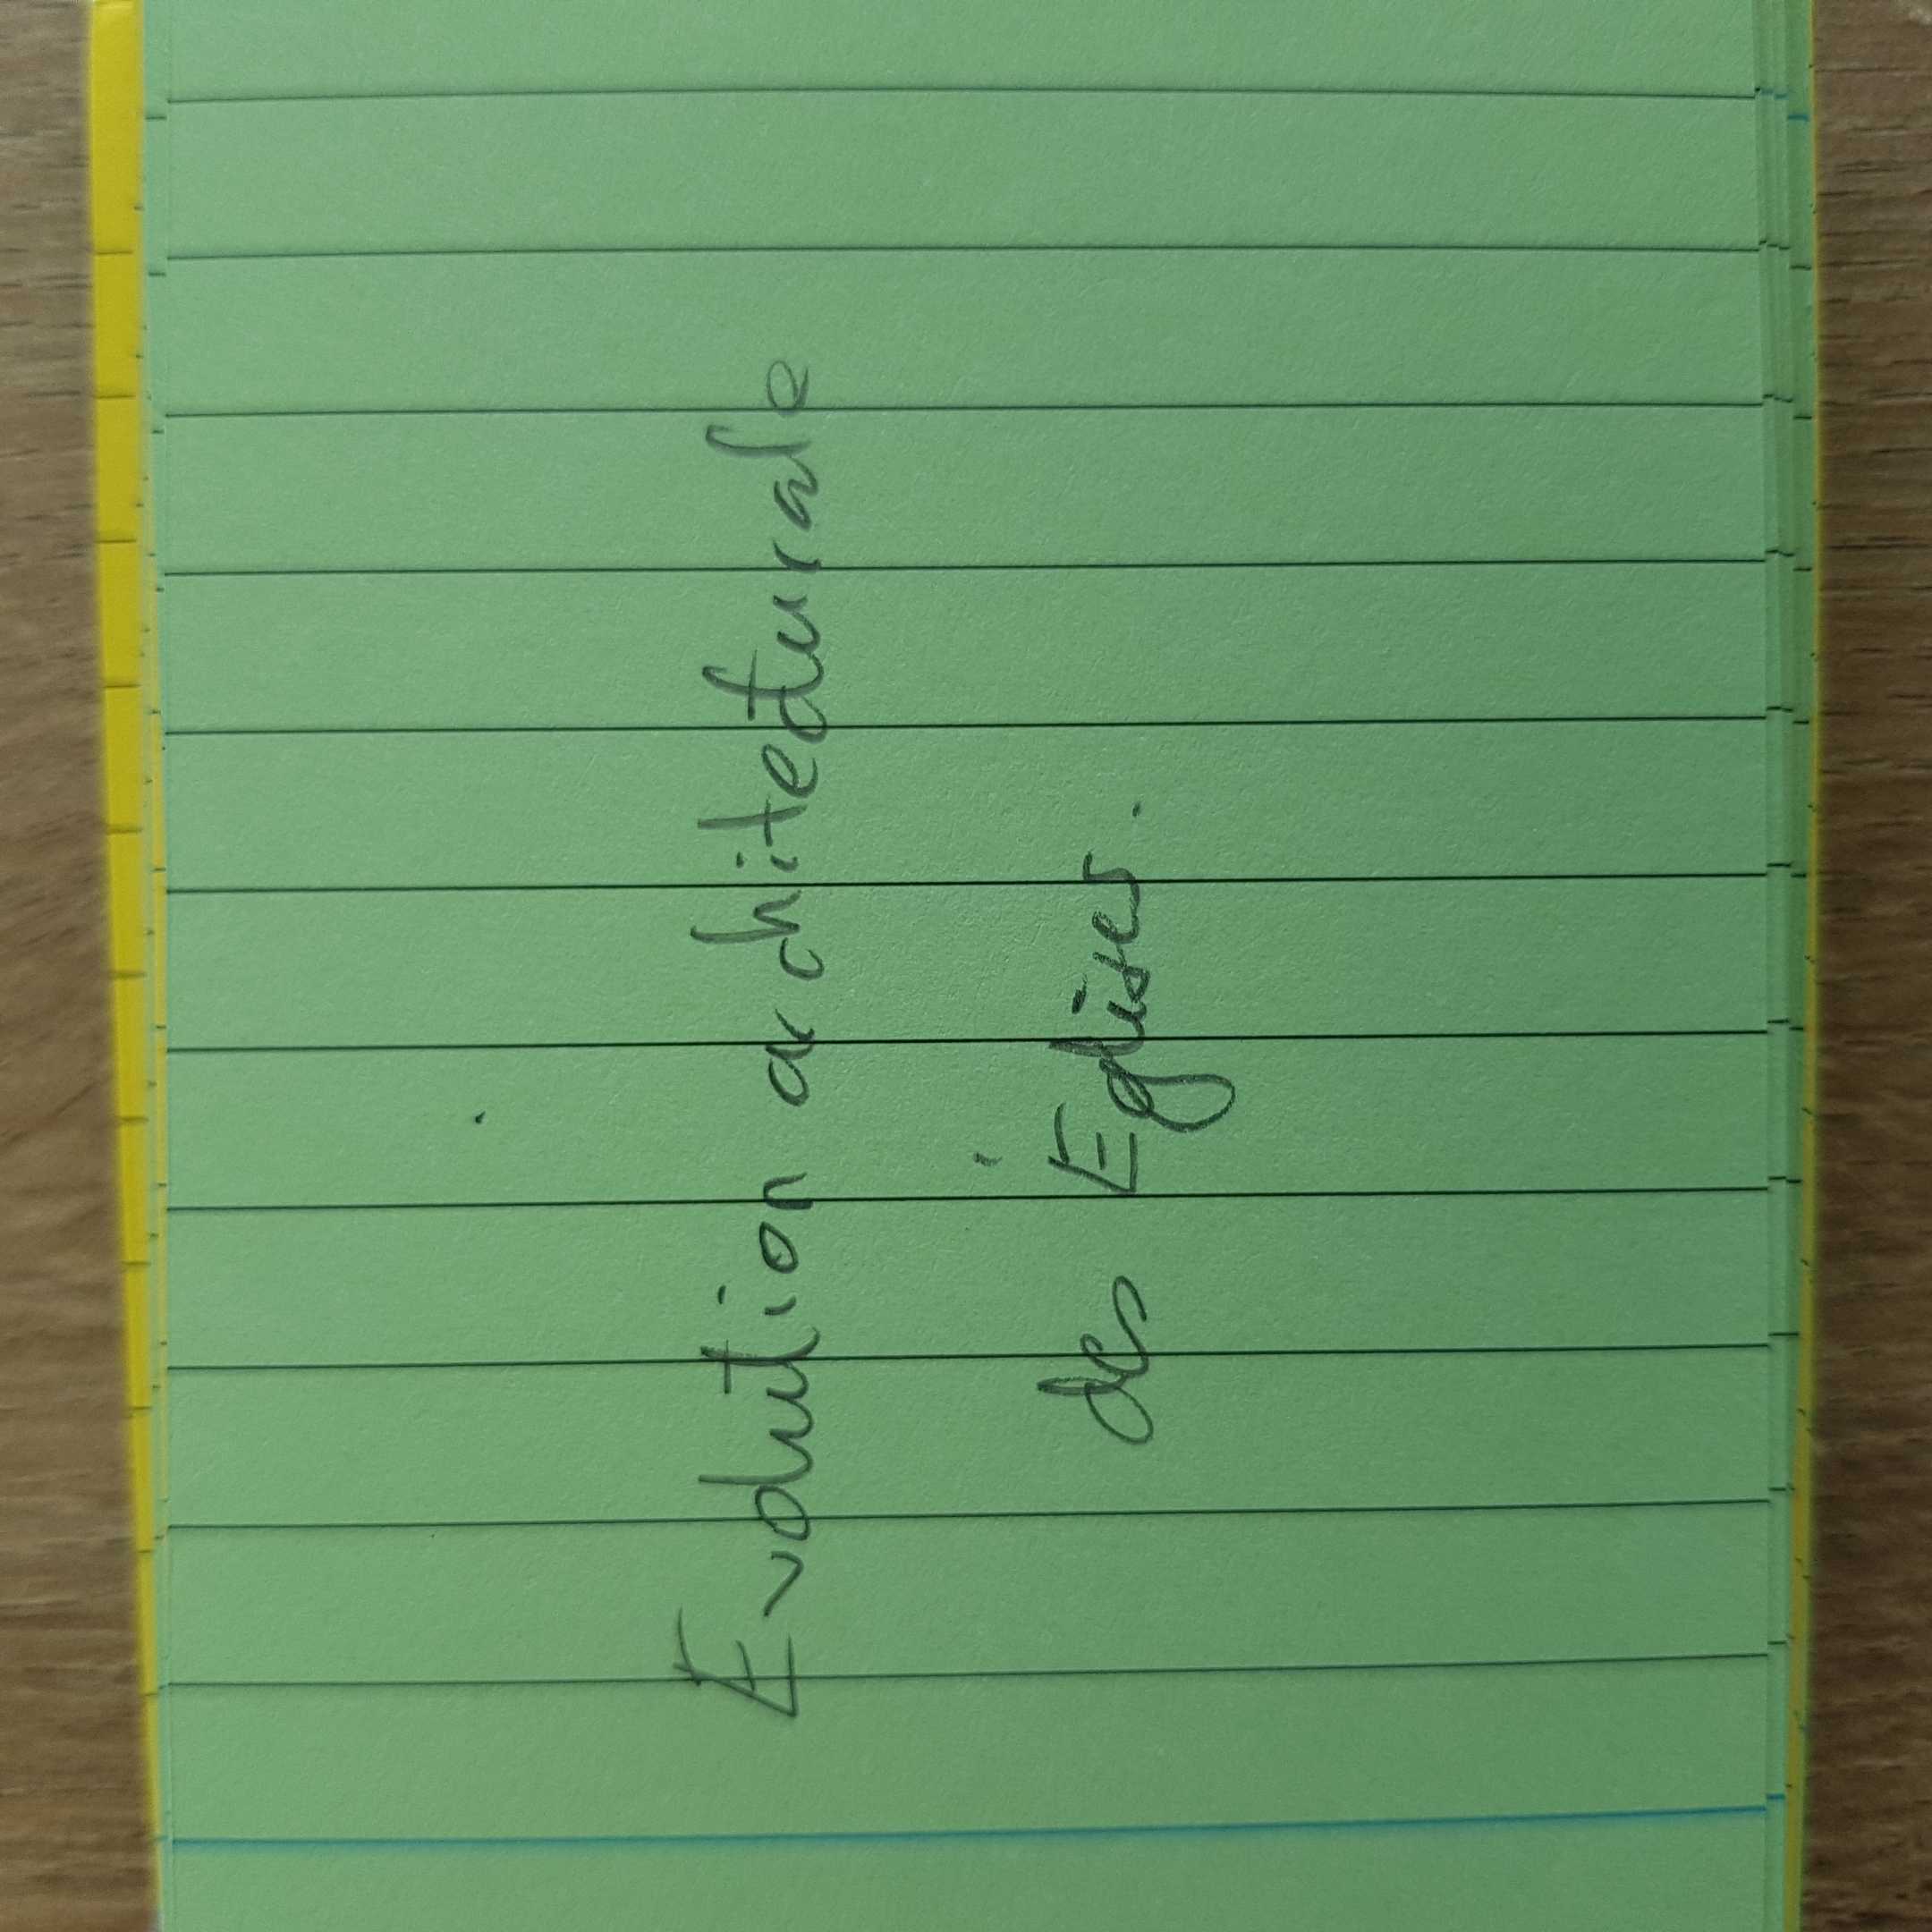 Evolution architecturale
des Églises.